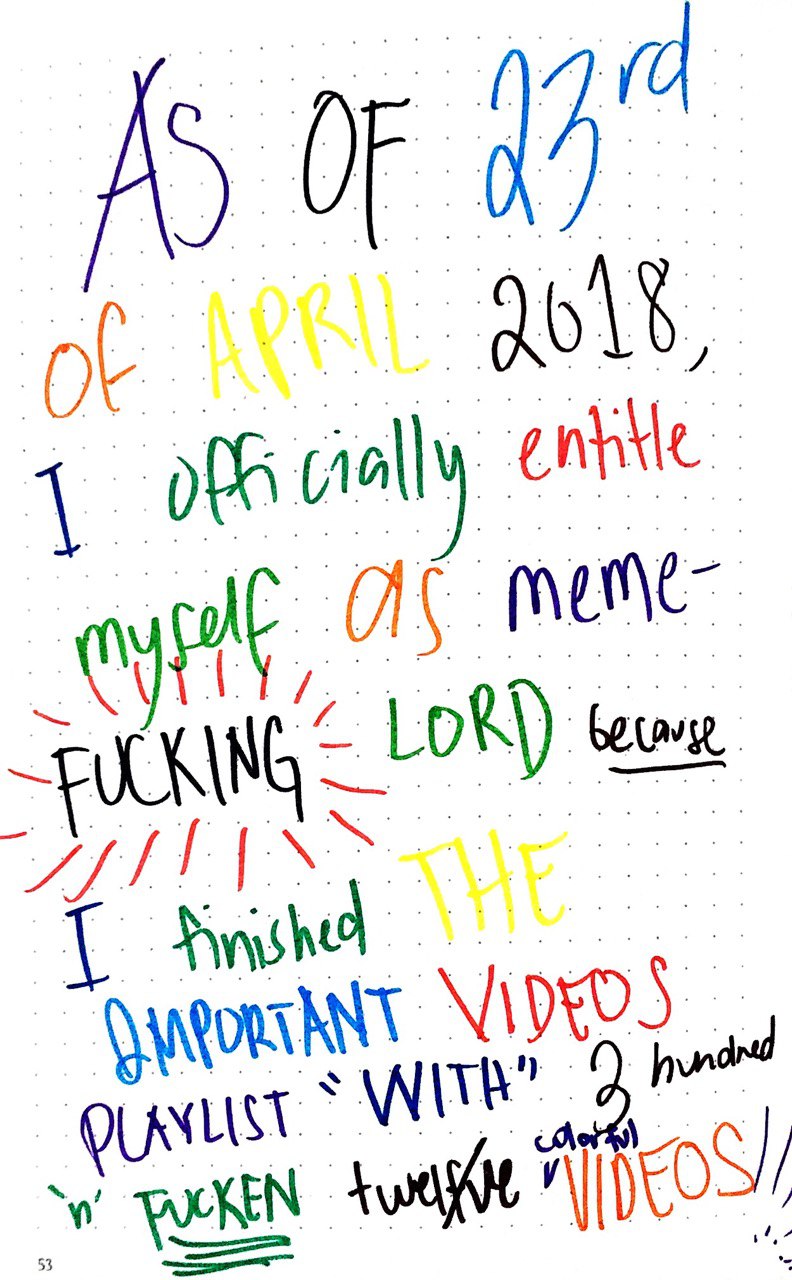 AS OF 23rd
of APRIL 2018,
I officially entitle
myself as meme-
FUCKING LORD because
I finished THE
IMPORTANT VIDEOS
PLAYLIST "WITH" 3 hundred
'n' FUCKEN twelve colorful VIDEOS!!
53